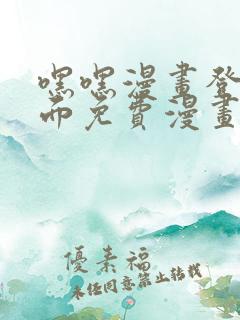 嘿嘿漫畫登
而免費漫畫
優素福
未经同意禁止转载